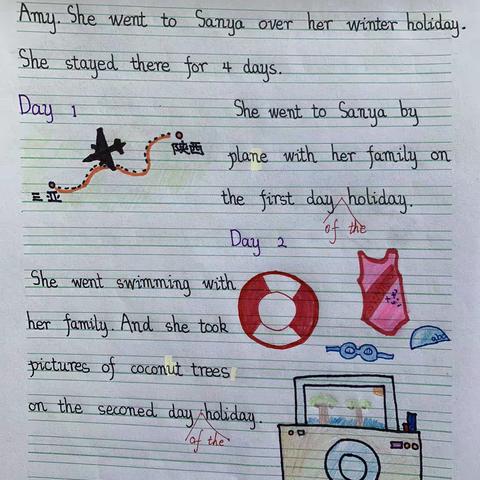 Amy. She went to Sanya over her winter holiday.
She stayed there for 4 days.
Day 1
陕西
三亚
She went to Sanya by
plane with her family on
the first day holiday.
of the
Day 2
She went swimming with
her family. And she took
pictures of coconut trees
on the seconed day holiday.
of the
abc